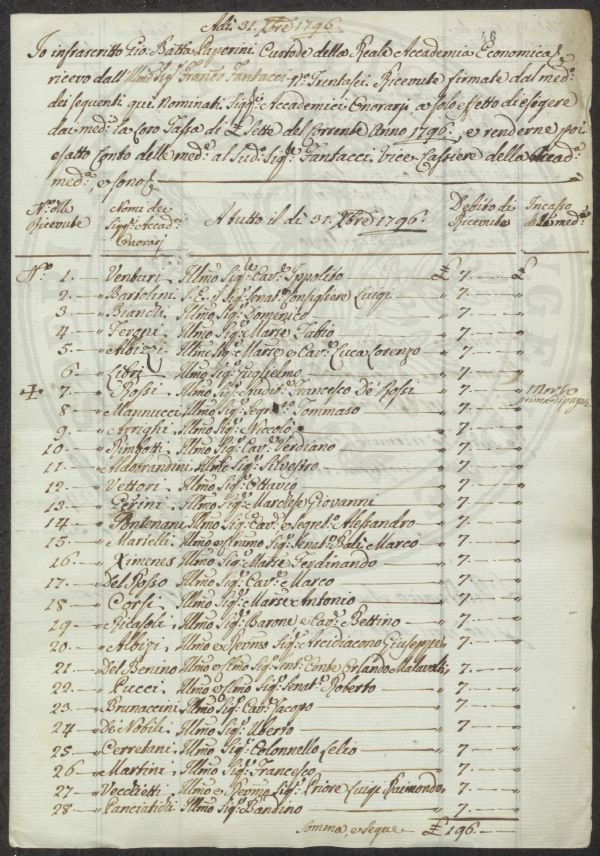 Adì 31. Xbre 1796.
46
Io infrascritto Gio: Batta Paperini Custode della Reale Accademia Economica
ricevo dall' Illmo Sigr Franco Fantacci No: Trentasei Ricevute firmate dal medo:
dei sequenti qui Nominati Sigri: Accademici Onorarj a solo effetto di esigere
dai medi: la loro Tassa di £ Sette del Corrente Anno 1796., e renderne poi
esatto Conto delle mede: al Sudo: Sigr: Fantacci Vice-Cassiere della Accada:
meda: e sono £
No: delle Ricevute
Nomi dei Sigri Accadi: Onorarj
A tutto il dì 31. Xbre 1796.
Debito di Ricevute
Incasso delle mede:
No: 1. Venturi, Illmo Sigr: Cavr: Ippolito £ 7. — „ £
2. — „ Bartolini, S: E: il Sigr: Senatr: Consigliere Luigi „ 7. — „
3. — „ Bianchi, Illmo Sigr: Domenico „ 7. — „
4 — „ Feroni, Illmo Sigr: Marse Fabio „ 7. — „
5. — „ Albizzi, Illmo Sigr: Marse e Cavr: Luca Lorenzo „ 7. — „
6. — „ Libri, Illmo Sigr: Guglielmo „ 7. — „
7. — „ Rossi, Illmo Sigr: Francesco De' Rossi „ 7. — „ Morto prima di
8 — „ Mannucci, Illmo Sigr: Tommaso „ 7. — „
9 — „ Arrighi, Illmo Sigr: Niccolò „ 7. — „
10. — „ Rinbotti, Illmo Sigr: Cavr: Verdiano „ 7. — „
11. — „ Aldobrandini, Illmo Sigr: Silvestro „ 7. — „
12. — „ Vettori, Illmo Sigr: Ottavio „ 7. — „
13. — „ Gerini, Illmo Sigr: Marchese Giovanni „ 7. — „
14 — „ Pontenani, Illmo Sigr: Cavr: e Segreto: Alessandro „ 7. — „
15 — „ Martelli, Illmo e Sigr: Senatr: Balì Marco „ 7. — „
16. — „ Ximenes, Illmo Sigr: Marse Ferdinando „ 7. — „
17. — „ Del Rosso, Illmo Sigr: Cavr: Marco „ 7. — „
18 — „ Corsi, Illmo Sigr: Marse Antonio „ 7. — „
19 — „ Ricasoli, Illmo Sigr: Barone e Cavr: Bettino „ 7. — „
20. — „ Albizi, Illmo e Revmo Sigr: Arcidiacono Giuseppe „ 7. — „
21. — „ Del Benino, Illmo e Sigr: Senatr: Conte Orlando Malavolti „ 7. — „
22. — „ Pucci, Illmo e Sigr: Senatr: Roberto „ 7. — „
23 — „ Brunaccini, Illmo Sigr: Cavr: Jacopo „ 7. — „
24 — „ De' Nobili, Illmo Sigr: Uberto „ 7. — „
25 — „ Cerretani, Illmo Sigr: Colonnello Lelio „ 7. — „
26 — „ Martini, Illmo Sigr: Francesco „ 7. — „
27 — „ Vecchietti, Illmo e Revmo Sigr: Priore Luigi Raimondo „ 7. — „
28 — „ Panciatichi, Illmo Sigr: Bandino „ 7. — „
Somma, e segue £ 196. —